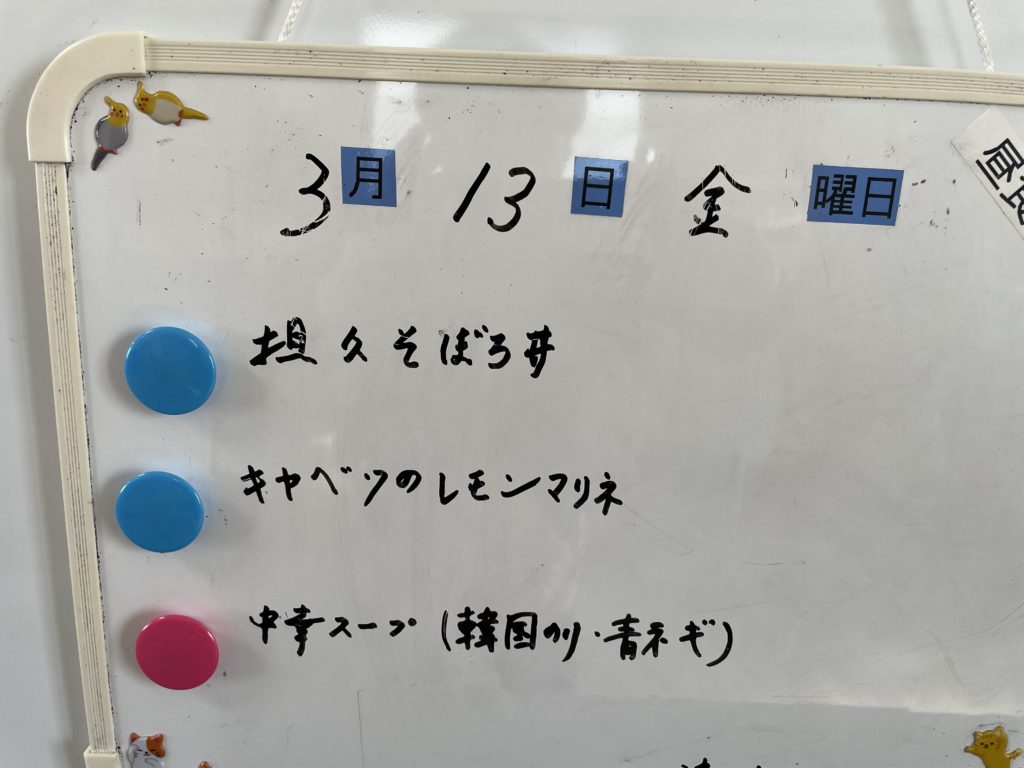 3月 13日 金 曜日
昼食
担々そぼろ丼
キャベツのレモンマリネ
中華スープ(韓国のり・青ネギ)